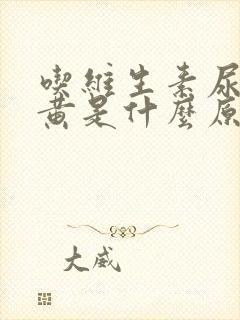 喫維生素尿
黃是什麼原
大威